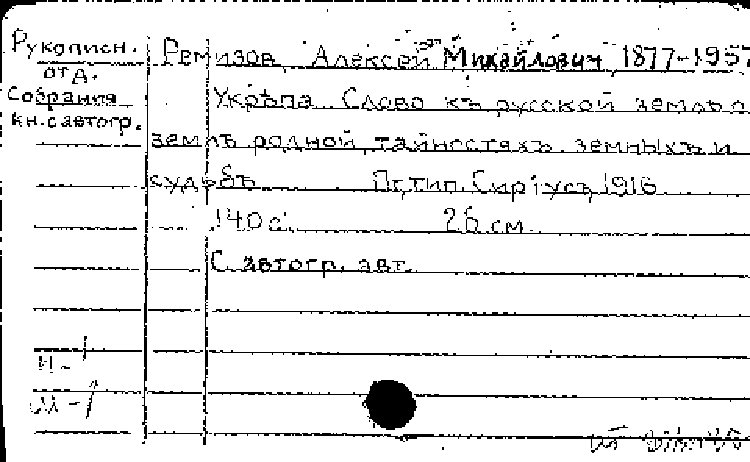 Рукописн.
отд.
Собрания
кн. с автогр.
Ремизов, Алексей Михайлович, 1877-1957.
Укрѣпа. Слово къ русской землѣ о
землѣ родной, тайностяхъ земныхъ и
судьбѣ. Пг, тип. Сиріусъ, 1916.
140 с. 26 см.
С автогр. авт.
И-1
М-1